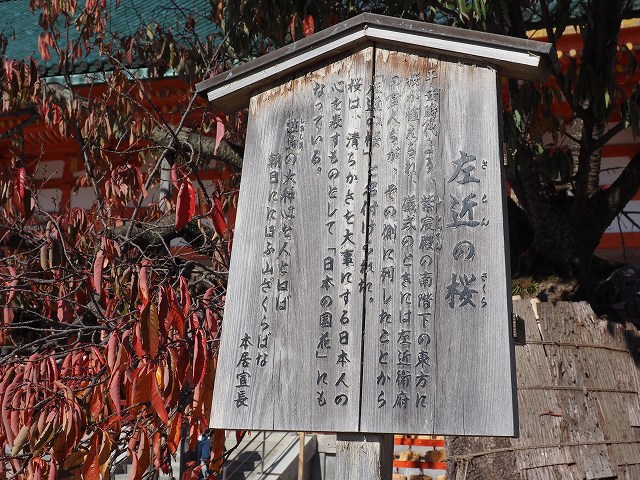 左近の桜
さこん
さくら
平安時代より、紫宸殿の南階下の東方に
桜が植えられ、儀式のときには左近衛府
の官人らが、その側に列したことから
左近の桜と名付けられた。
桜は、清らかさを大事にする日本人の
心を表すものとして「日本の国花」にも
なっている。
敷島の大和ごころを人とはば
朝日ににほふ山ざくらばな
本居宣長